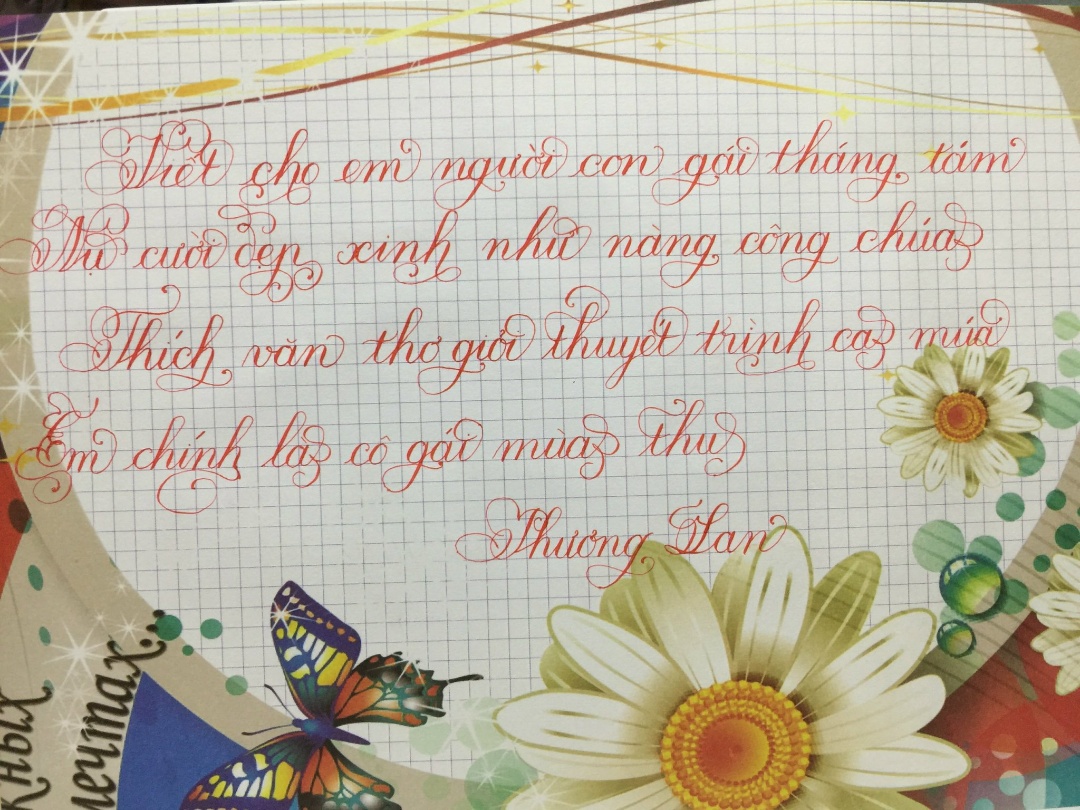 Viết cho em người con gái tháng tám
Nụ cười đẹp xinh như nàng công chúa
Thích văn thơ giỏi thuyết trình ca múa
Em chính là cô gái mùa thu
Thương Lan
мечтах...